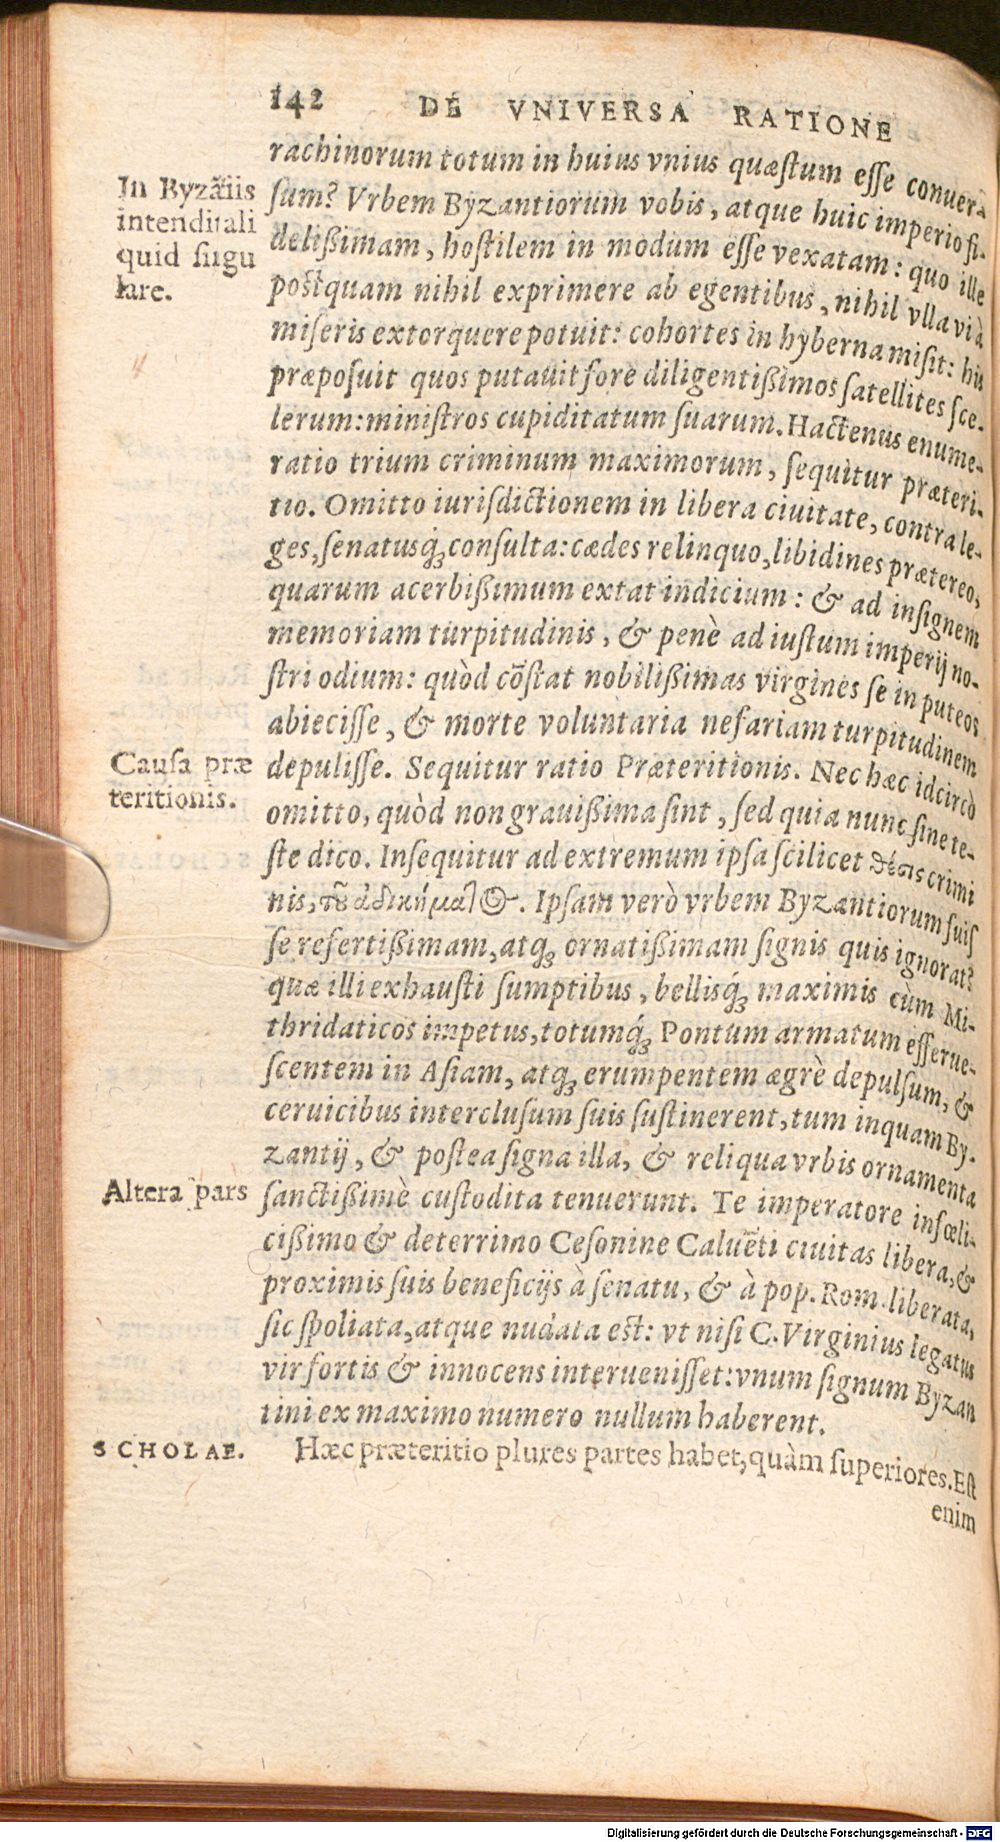 142 DE VNIVERSA RATIONE
rachinorum totum in huius vnius quæſtum eſſe conuerſ
In Byzãtiis
intendit ali
quid ſingu
lare.
ſum? Vrbem Byzantiorum vobis, atque huic imperio fi-
delißimam, hoſtilem in modum eſſe vexatam: quo ille
poſtquam nihil exprimere ab egentibus, nihil vlla vi à
miſeris extorquere potuit: cohortes in hyberna miſit: his
præpoſuit quos putauit fore diligentißimos ſatellites ſce-
lerum: miniſtros cupiditatum ſuarum. Hactenus enume-
ratio trium criminum maximorum, ſequitur præteri-
tio. Omitto iuriſdictionem in libera ciuitate, contra le-
ges, ſenatusq́ꝫ conſulta: cædes relinquo, libidines prætereo,
quarum acerbißimum extat indicium: & ad inſignem
memoriam turpitudinis, & penè ad iuſtum imperij no-
ſtri odium: quòd cõſtat nobilißimas virgines ſe in puteos
abieciſſe, & morte voluntaria nefariam turpitudinem
Cauſa præ
teritionis.
depuliſſe. Sequitur ratio Præteritionis. Nec hæc idcircò
omitto, quòd non grauißima ſint, ſed quia nunc ſine te-
ſte dico. Inſequitur ad extremum ipſa ſcilicet θέσις crimi
nis, τȣ͂ ἀδικήματος. Ipſam verò vrbem Byzantiorum fuiſ
ſe refertißimam, atqꝫ ornatißimam ſignis quis ignorat?
quæ illi exhauſti ſumptibus, bellisq́ꝫ maximis cùm Mi-
thridaticos impetus, totumq́ꝫ Pontum armatum efferue-
ſcentem in Aſiam, atqꝫ erumpentem ægrè depulſum, &
ceruicibus interclusum ſuis ſuſtinerent, tum inquam By-
zantij, & poſtea ſigna illa, & reliqua vrbis ornamenta
Altera pars
ſanctißimè cuſtodita tenuerunt. Te imperatore infœli-
cißimo & deterrimo Ceſonine Caluẽti ciuitas libera, &
proximis ſuis beneficijs à ſenatu, & à pop. Rom. liberata,
ſic ſpoliata, atque nudata eſt: vt niſi C. Virginius legatus
vir fortis & innocens interueniſſet: vnum ſignum Byzan
tini ex maximo numero nullum haberent.
SCHOLAE. Hæc præteritio plures partes habet, quàm ſuperiores. Eſt
enim
Digitalisierung gefördert durch die Deutsche Forschungsgemeinschaft - DFG